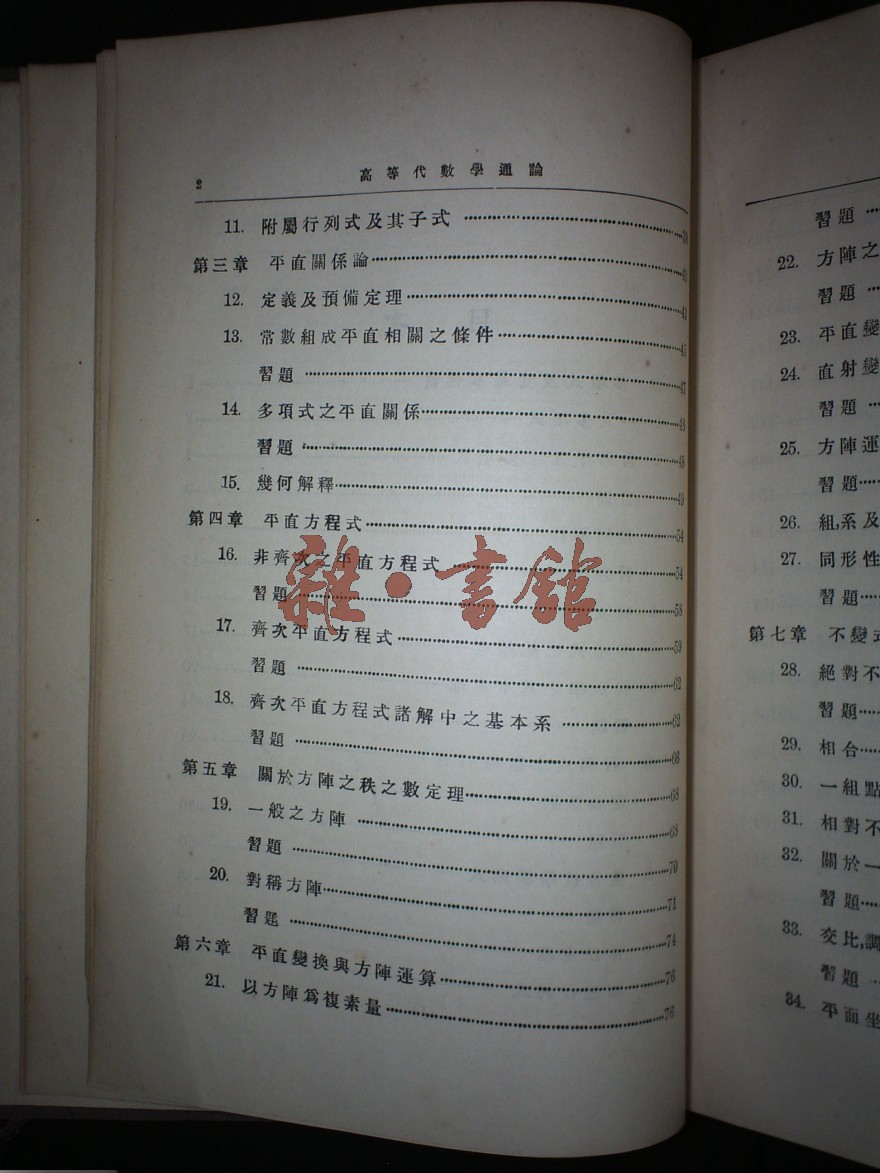 2 高等代數學通論
11. 附屬行列式及其子式 ……38
第三章 平直關係論……43
12. 定義及預備定理……43
13. 常數組成平直相關之條件……45
習題 ……47
14. 多項式之平直關係……48
習題 ……48
15. 幾何解釋……49
第四章 平直方程式……54
16. 非齊次之平直方程式 ……54
習題 ……58
17. 齊次平直方程式……59
習題 ……62
18. 齊次平直方程式諸解中之基本系 ……62
習題 ……66
第五章 關於方陣之秩之數定理……68
19. 一般之方陣 ……68
習題 ……70
20. 對稱方陣……71
習題 ……74
第六章 平直變換與方陣運算……76
21. 以方陣爲複素量……76
雜·書館
習題 …
22. 方陣之
習題 …
23. 平直變
24. 直射變
習題 …
25. 方陣運
習題…
26. 組,系及
27. 同形性
習題…
第七章 不變式
28. 絕對不
習題…
29. 相合…
30. 一組點
31. 相對不
32. 關於一
習題…
33. 交比,調
習題 …
34. 平面坐